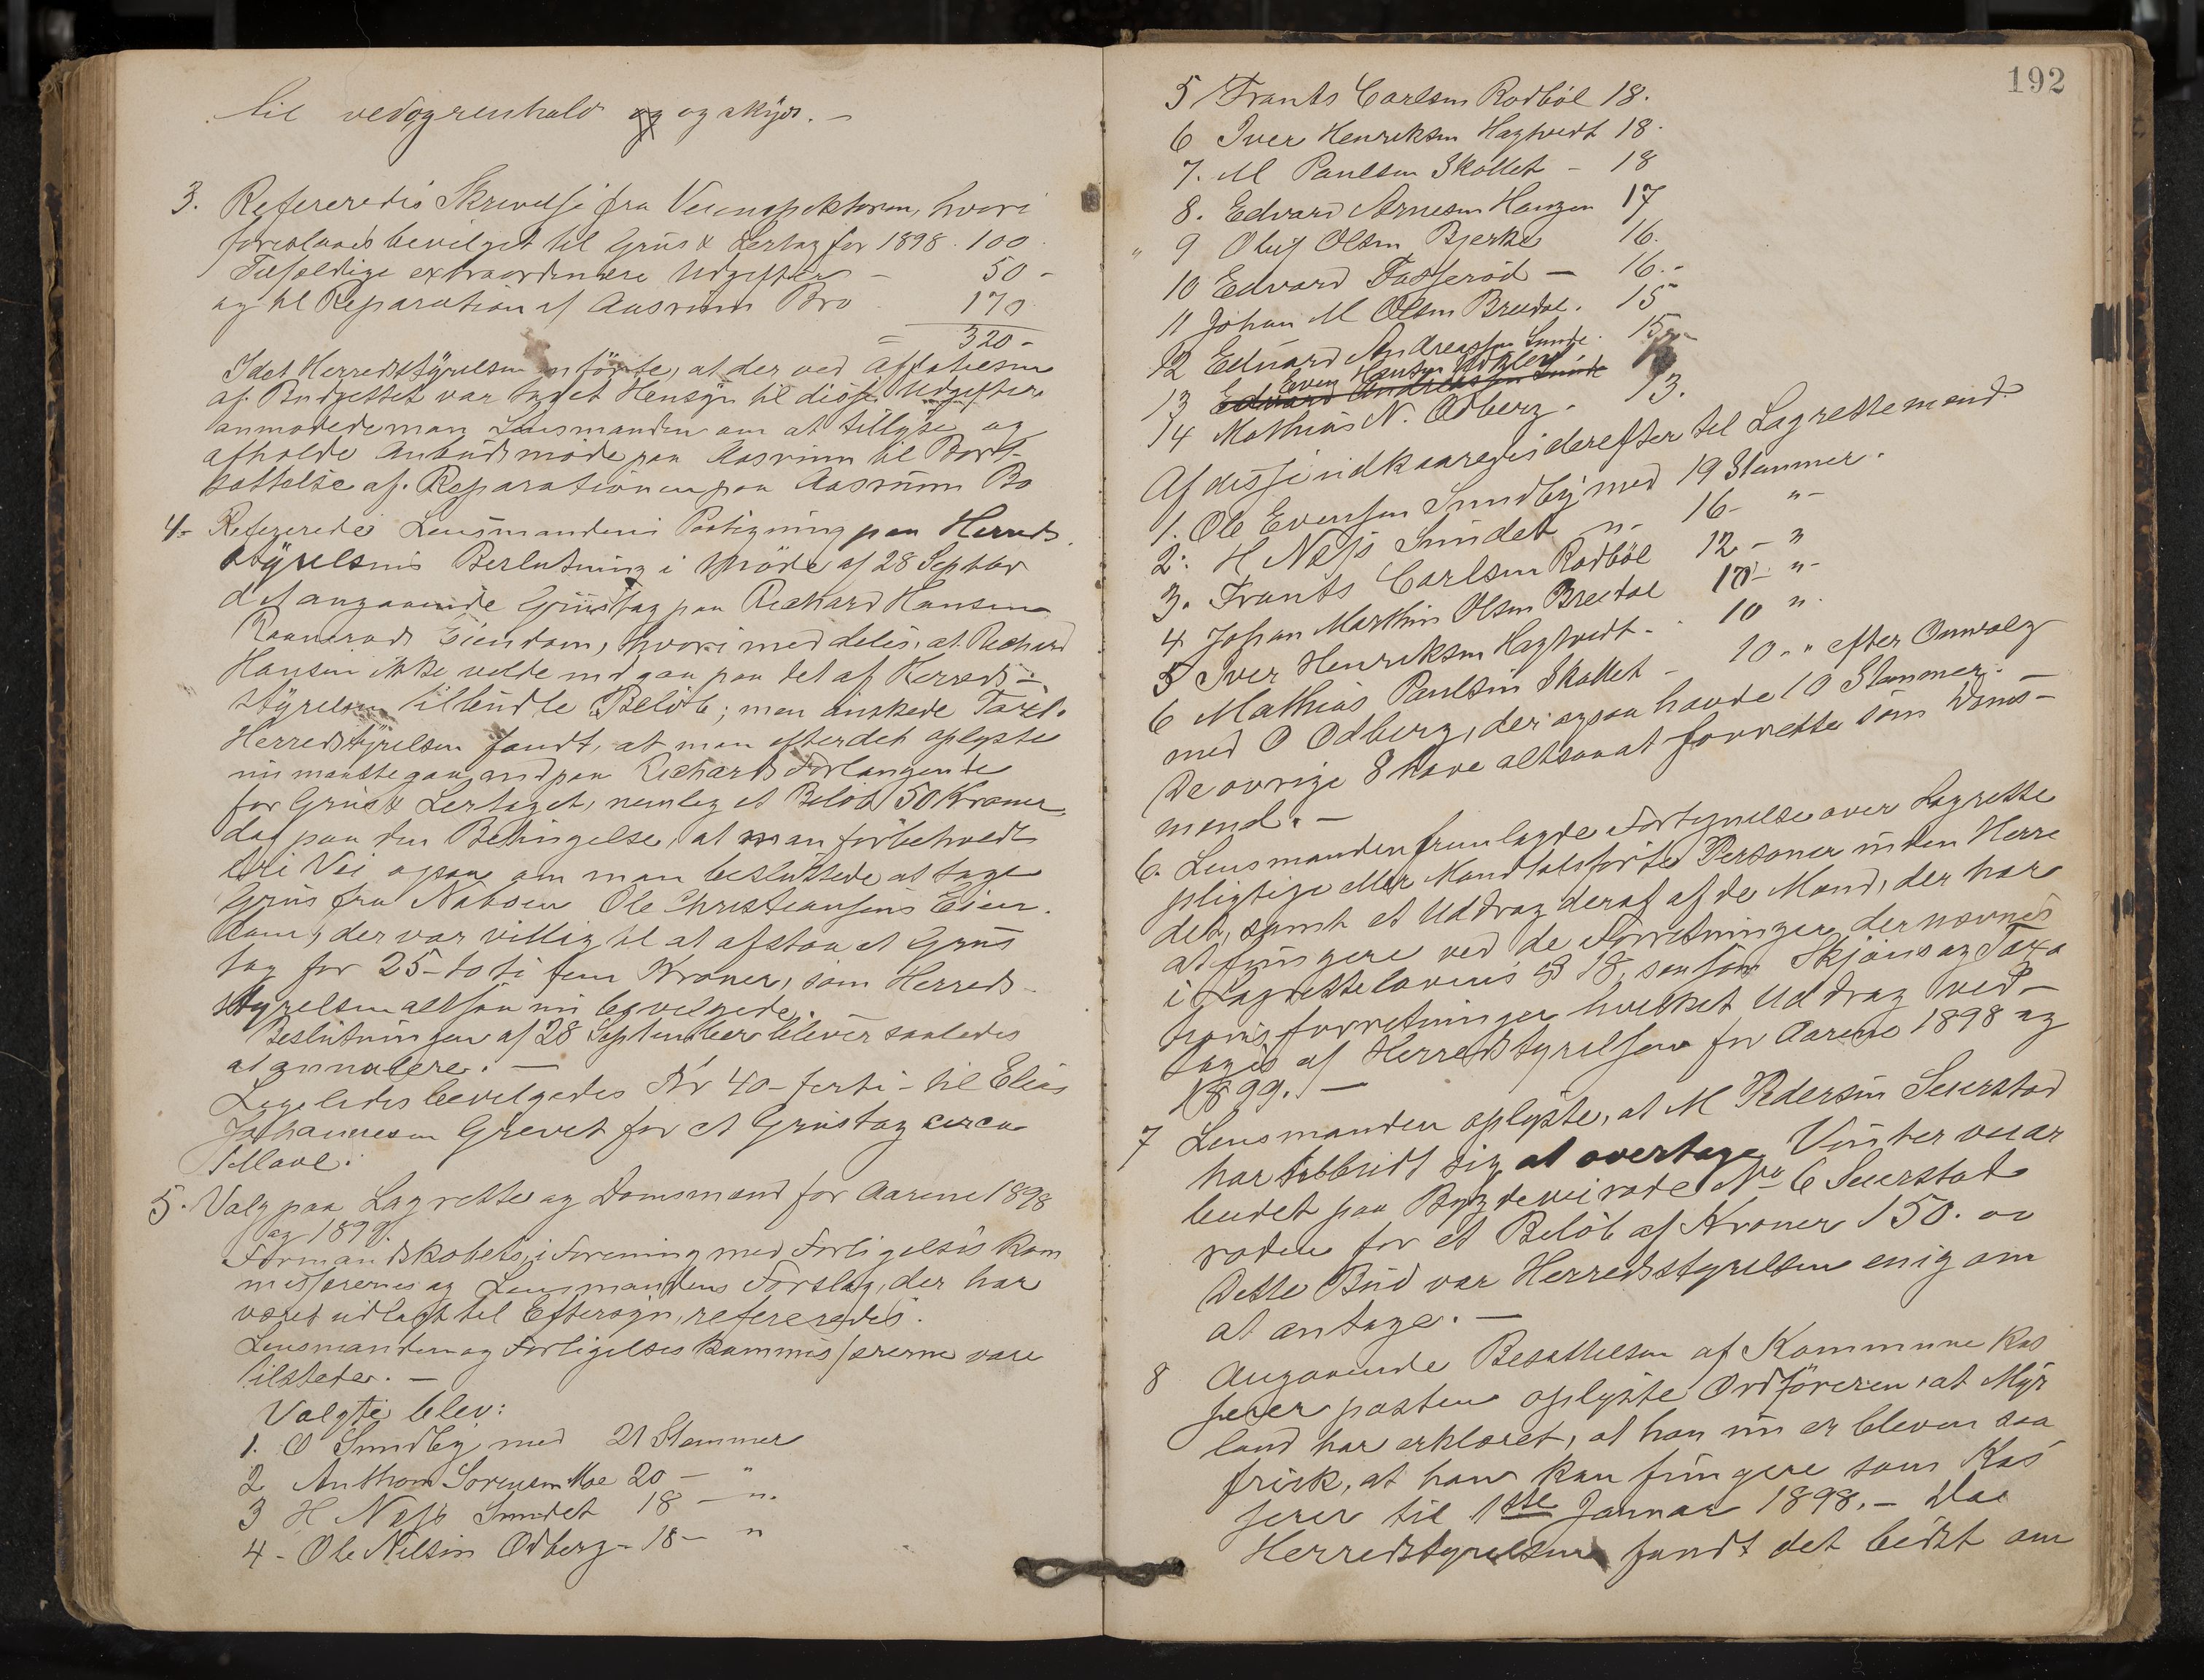 til vedogrenhold og og skyds. -
3. Refereredes Skrivelse fra Veiinspektøren, hvori
foreslaaes bevilget til Grus & Lertag for 1898. 100
Tilfældige extraordinære Udgifter - 50 -
og til Reparation af Aasrum Bro 170
= 320 -
Idet Herredsstyrelsen anførte, at der ved Affatelsen
af Budgettet var taget Hensyn til disse Udgifter
anmodede man Lensmanden om at tillyse og
afholde Anbudsmøde paa Aasrum til Bort-
sættelse af Reparationen paa Aasrum Bro
4- Refereredes Lensmandens Paategning paa Herreds
styrelsens Beslutning i Møde af 28 Septbr
d A angaaende Grustag paa Richard Hansen
Eiendom, hvori meddeles, at Richard
Hansen ikke vilde indgaa paa det af Herreds-
styrelsen tilbudte Beløb; men ønskede Taxt.
Herredsstyrelsen fandt, at man efter det oplyste
nu maatte gaa ind paa Richards Forlangende
for Grus & Lertaget, nemlig et Beløb 50 Kroner,
dog paa den Betingelse, at man forbeholdt
fri Vei ogsaa om man besluttede at tage
Grus fra Naboen Ole Christiansens Eien-
dom, der var villig til at afstaa et Grus
tag for 25 - to ti fem Kroner, som Herreds-
styrelsen altsaa nu bevilgede.
Beslutningen af 28 September bliver saaledes
at annulere. -
Ligeledes bevilgedes Kr 40 - forti - til Elias
Johannesen Grevet for et Grustag circa
1 Maal.
5. Valg paa Lagrette og Domsmænd for Aarene 1898
og 1899.
Formandskabets, i Forening med Forligelses kom
missærernes og Lensmandens Forslag, der har
været udlagt til Eftersyn, refereredes.
Lensmanden og Forligelseskommissærerne vare
tilstede. -
Valgte blev:
1. O Sundby med 21 Stemmer
2 Anthon Sørensen Moe 20 - "
3 H Næss Sundet 18 - "
4 - Ole Nilsen Odberg - 18 - "
192
5 Frants Carlsen Rødbøl 18.
6 Iver Henriksen Hagtvedt 18.
7. M Paulsen Skallet - 18
8. Edvard Arnesen Haugen 17
" 9 Oluf Olsen Bjerke 16.
10 Edvard Fosserød - 16. -
11 Johan M Olsen Bredal. 15
12 Edvard Andreassen Sunde. 15 -
13 Edvard Andreassen Sunde Even Hansen
14 Mathias N. Odberg. 13.
Af disse udkaaredes derefter til Lagrettemænd
1. Ole Evensen Sundby med 19 Stemmer.
2. H Næss Sundet " 16 - " -
3. Frants Carlsen Rødbøl 12 - "
4. Johan Marthin Olsen Bredal 10 - " -
5 Iver Henriksen Hagtvedt - 10 "
6 Mathias Paulsen Skallet - 10 - " efter Omvalg
med O Odberg, der ogsaa havde 10 Stemmer. -
De øvrige 8 have altsaa at forrette som Doms-
mænd. -
6. Lensmanden fremlagde Fortegnelse over Lagrette
pligtige eller Mandtalsførte Personer inden Herre
det, samt et Uddrag deraf af de Mænd, der har
at fungere ved de Forretninger, der nævnes
i Lagrettelovens § 18, saasom Skjøns og Taxa
tionsforretninger, hvilket Uddrag ved-
toges af Herredsstyrelsen for Aarene 1898 og
1899. -
7 Lensmanden oplyste, at M Pedersen Seierstad
har tilbudt sig at overtage Vintervei ar
beidet paa Bygdeveirode No 6 Seierstad
roden for et Beløb af Kroner 150. 00
Dette Bud var Herredsstyrelsen enig om
at antage. -
8 Angaaende Besættelsen af Kommune Kas
serer posten oplyste Ordføreren, at Myr
land har erklæret, at han nu er bleven saa
frisk, at han kan fungere som Kas
serer til 1ste Januar 1898. - Da
Herredsstyrelsen fandt det bedst om